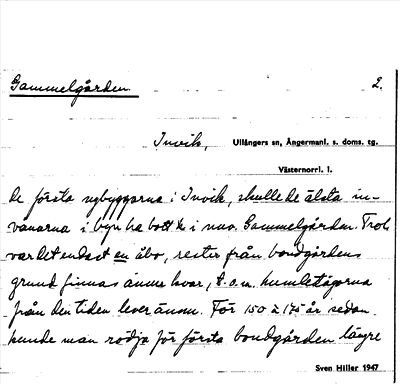 Gammelgården
2.
Invik, Ullångers sn, Ångermanl. s. doms. tg.
Västernorrl. l.
De första nybyggarna i Invik, skulle de älsta in-
vånarna i byn ha bott i nuv. Gammelgården. Trol.
var det endast en åbo, rester från bondgårdens
grund finnas ännu kvar, t.o.m. humletägorna
från den tiden lever ännu. För 150 à 175 år sedan
kunde man rödja för första bondgården längre
Sven Hiller 1947